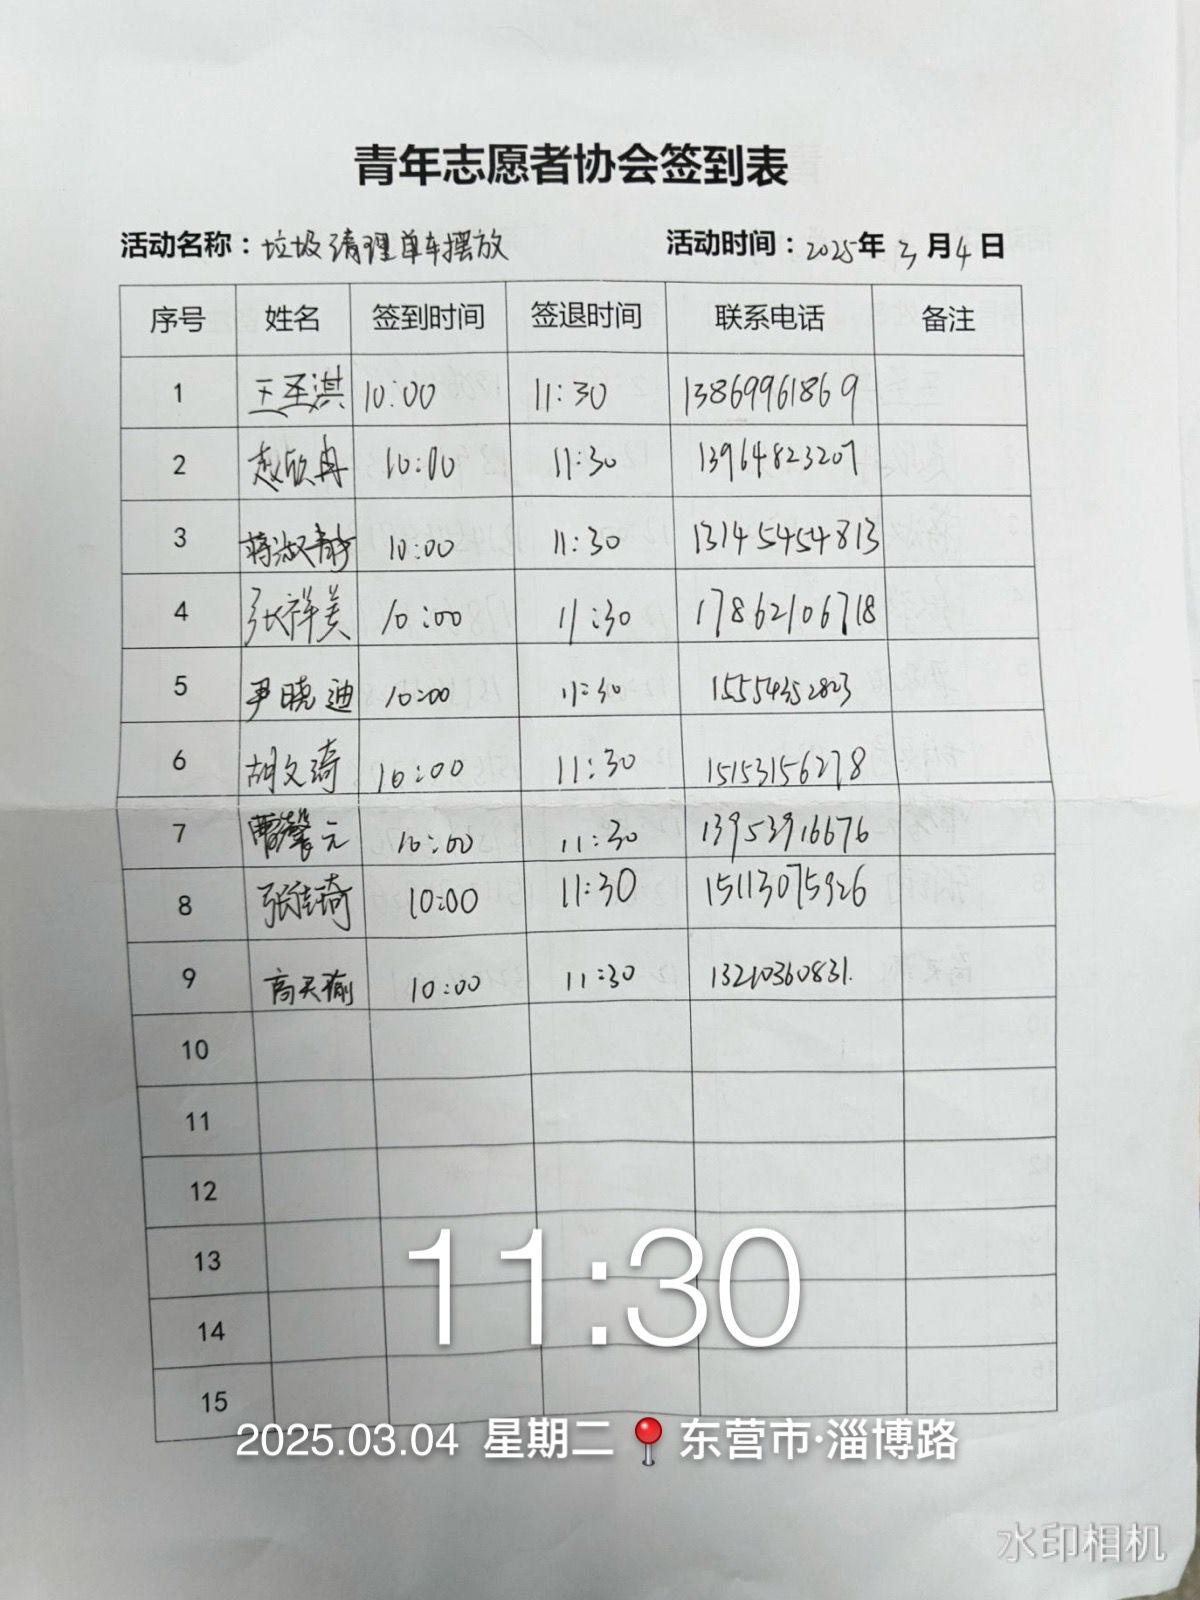 青年志愿者协会签到表
活动名称：垃圾清理单车摆放 活动时间：2025年3月4日
序号 姓名 签到时间 签退时间 联系电话 备注
1 王圣淇 10:00 11:30 13869961869
2 赵欣冉 10:00 11:30 13964823207
3 蒋淑静 10:00 11:30 13145454813
4 张祥美 10:00 11:30 17862106718
5 尹晓迪 10:00 11:30 15554352823
6 胡文琦 10:00 11:30 15153156278
7 曹馨元 10:00 11:30 13953916676
8 张佳琦 10:00 11:30 15113075926
9 高天瑜 10:00 11:30 13210360831.
10
11
12
13
14
15
11:30
2025.03.04 星期二 东营市·淄博路
水印相机